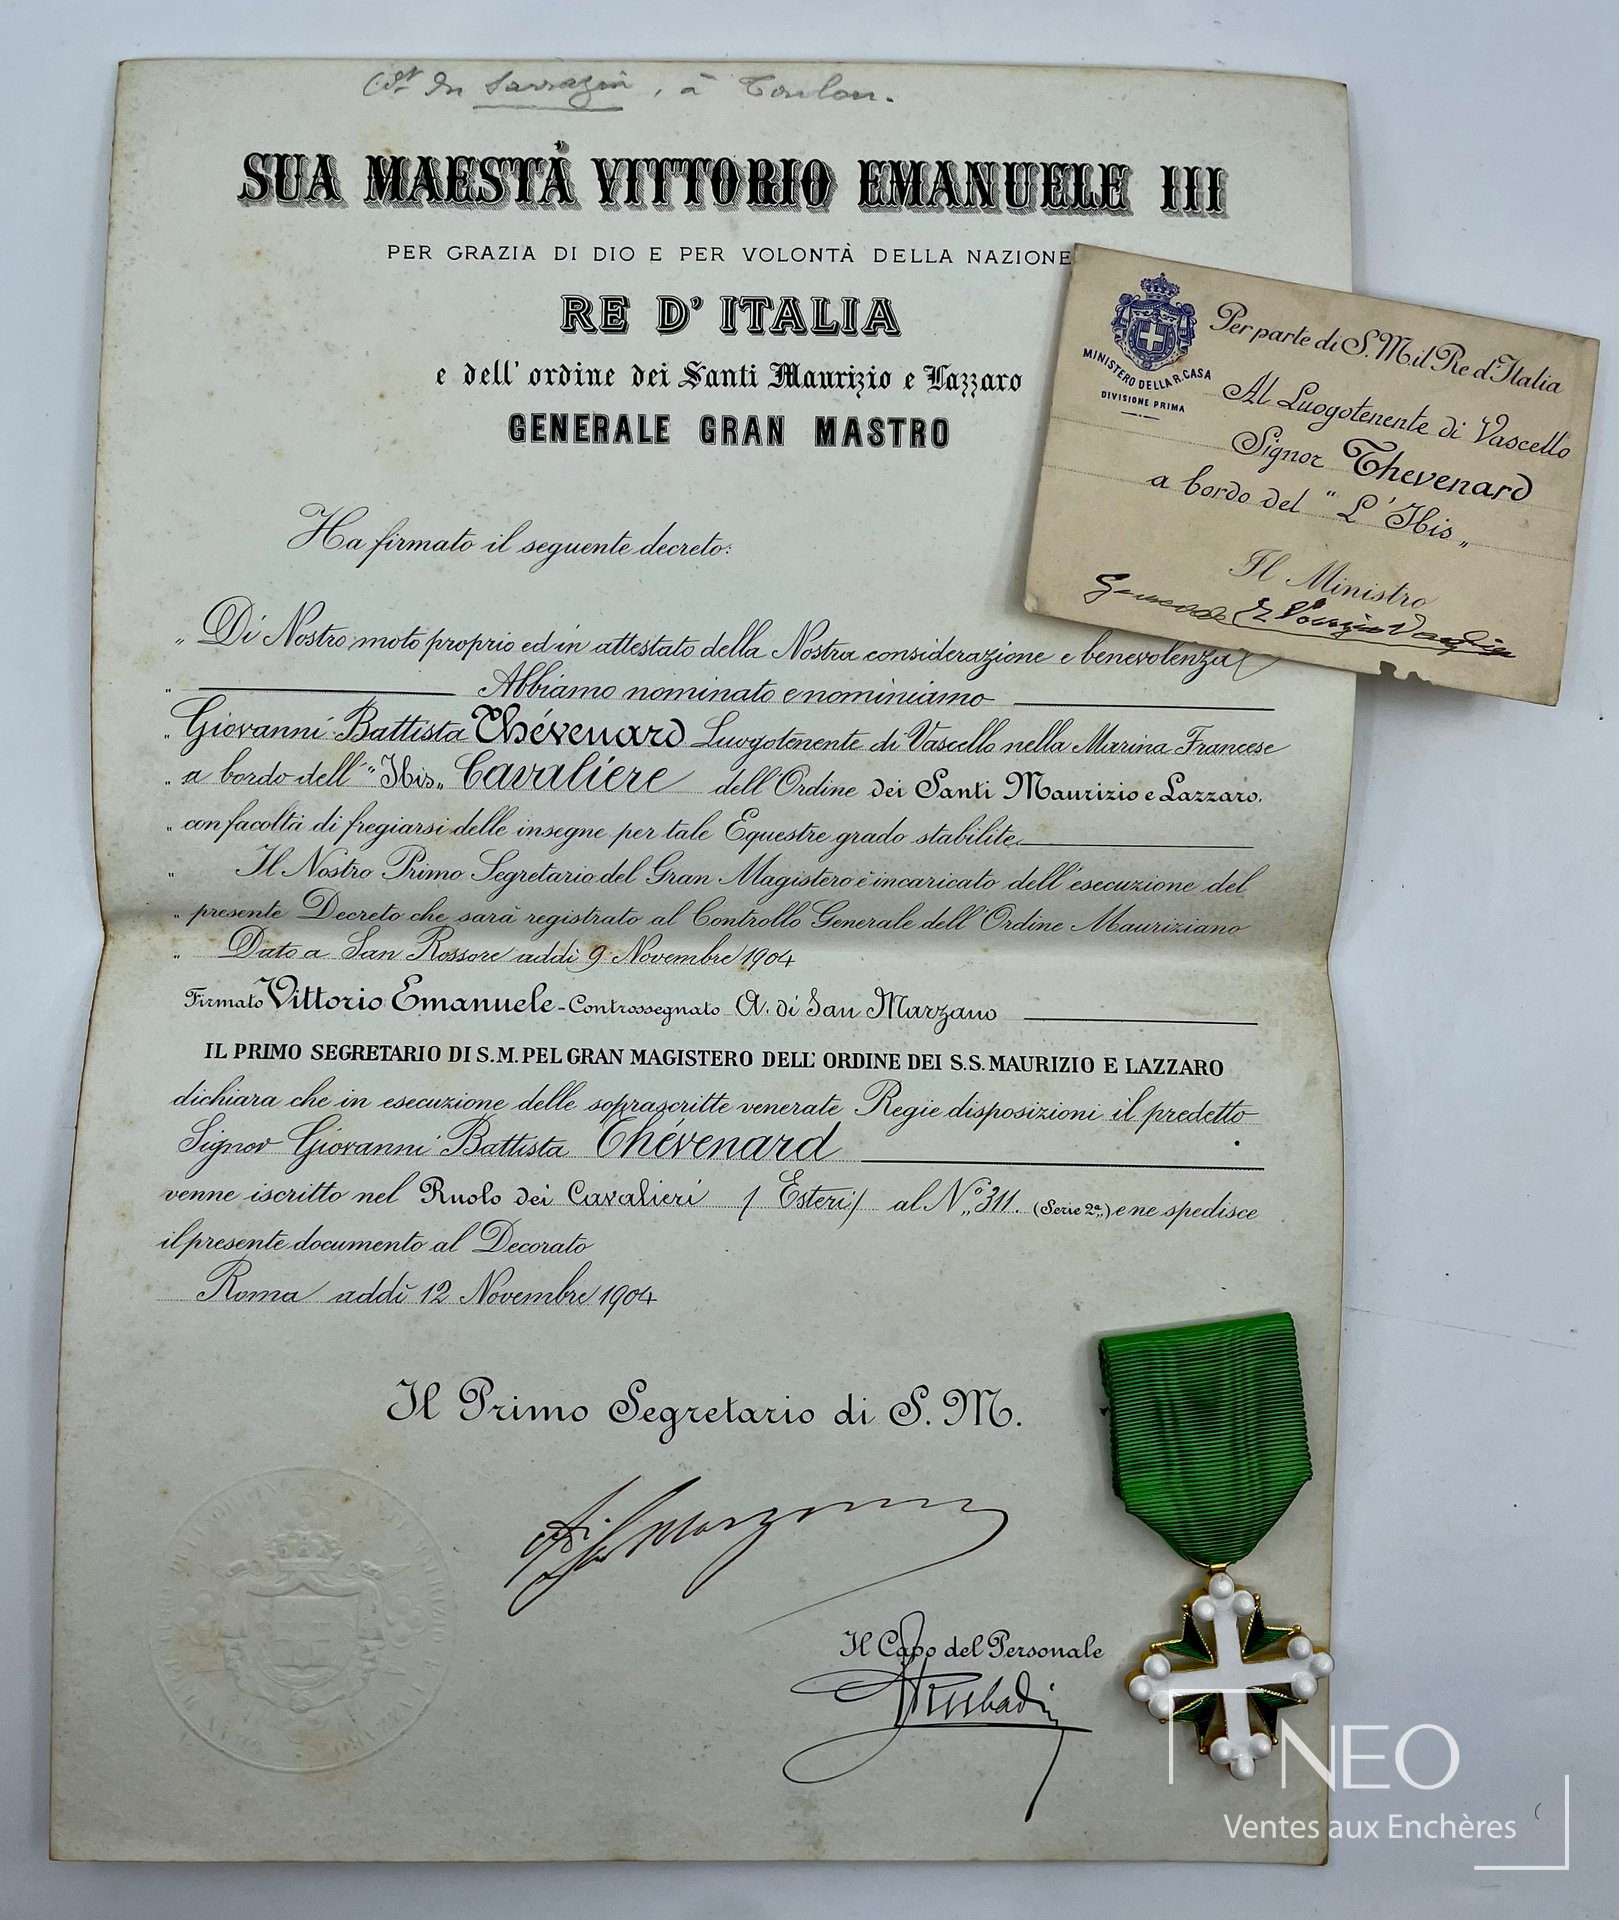 Cdt du Sarrazin, à Toulon.
SUA MAESTÀ VITTORIO EMANUELE III
PER GRAZIA DI DIO E PER VOLONTÀ DELLA NAZIONE
RE D'ITALIA
e dell' ordine dei Santi Maurizio e Lazzaro
GENERALE GRAN MASTRO
Ha firmato il seguente decreto:
„ Di Nostro moto proprio ed in attestato della Nostra considerazione e benevolenza
„ Abbiamo nominato e nominiamo
„ Giovanni Battista Thévenard Luogotenente di Vascello nella Marina Francese
„ a bordo dell' "Ibis„ Cavaliere dell'Ordine dei Santi Maurizio e Lazzaro,
„ con facoltà di fregiarsi delle insegne per tale Equestre grado stabilite.
„ Il Nostro Primo Segretario del Gran Magistero è incaricato dell'esecuzione del
„ presente Decreto che sarà registrato al Controllo Generale dell'Ordine Mauriziano
„ Dato a San Rossore addì 9 Novembre 1904
Firmato Vittorio Emanuele - Controssegnato A. di San Marzano
IL PRIMO SEGRETARIO DI S.M. PEL GRAN MAGISTERO DELL' ORDINE DEI S.S. MAURIZIO E LAZZARO
dichiara che in esecuzione delle soprascritte venerate Regie disposizioni il predetto
Signor Giovanni Battista Thévenard
venne iscritto nel Ruolo dei Cavalieri (Esteri) al N.° 311. (Serie 2ª.) e ne spedisce
il presente documento al Decorato
Roma addì 12 Novembre 1904
Il Primo Segretario di S. M.
A. di San Marzano
Il Capo del Personale
MINISTERO DELLA R. CASA
DIVISIONE PRIMA
Per parte di S. M. il Re d'Italia
Al Luogotenente di Vascello
Signor Thevenard
a bordo del "L'Ibis„
Il Ministro
Generale E Ponzio Vaglia
NEO
Ventes aux Enchères